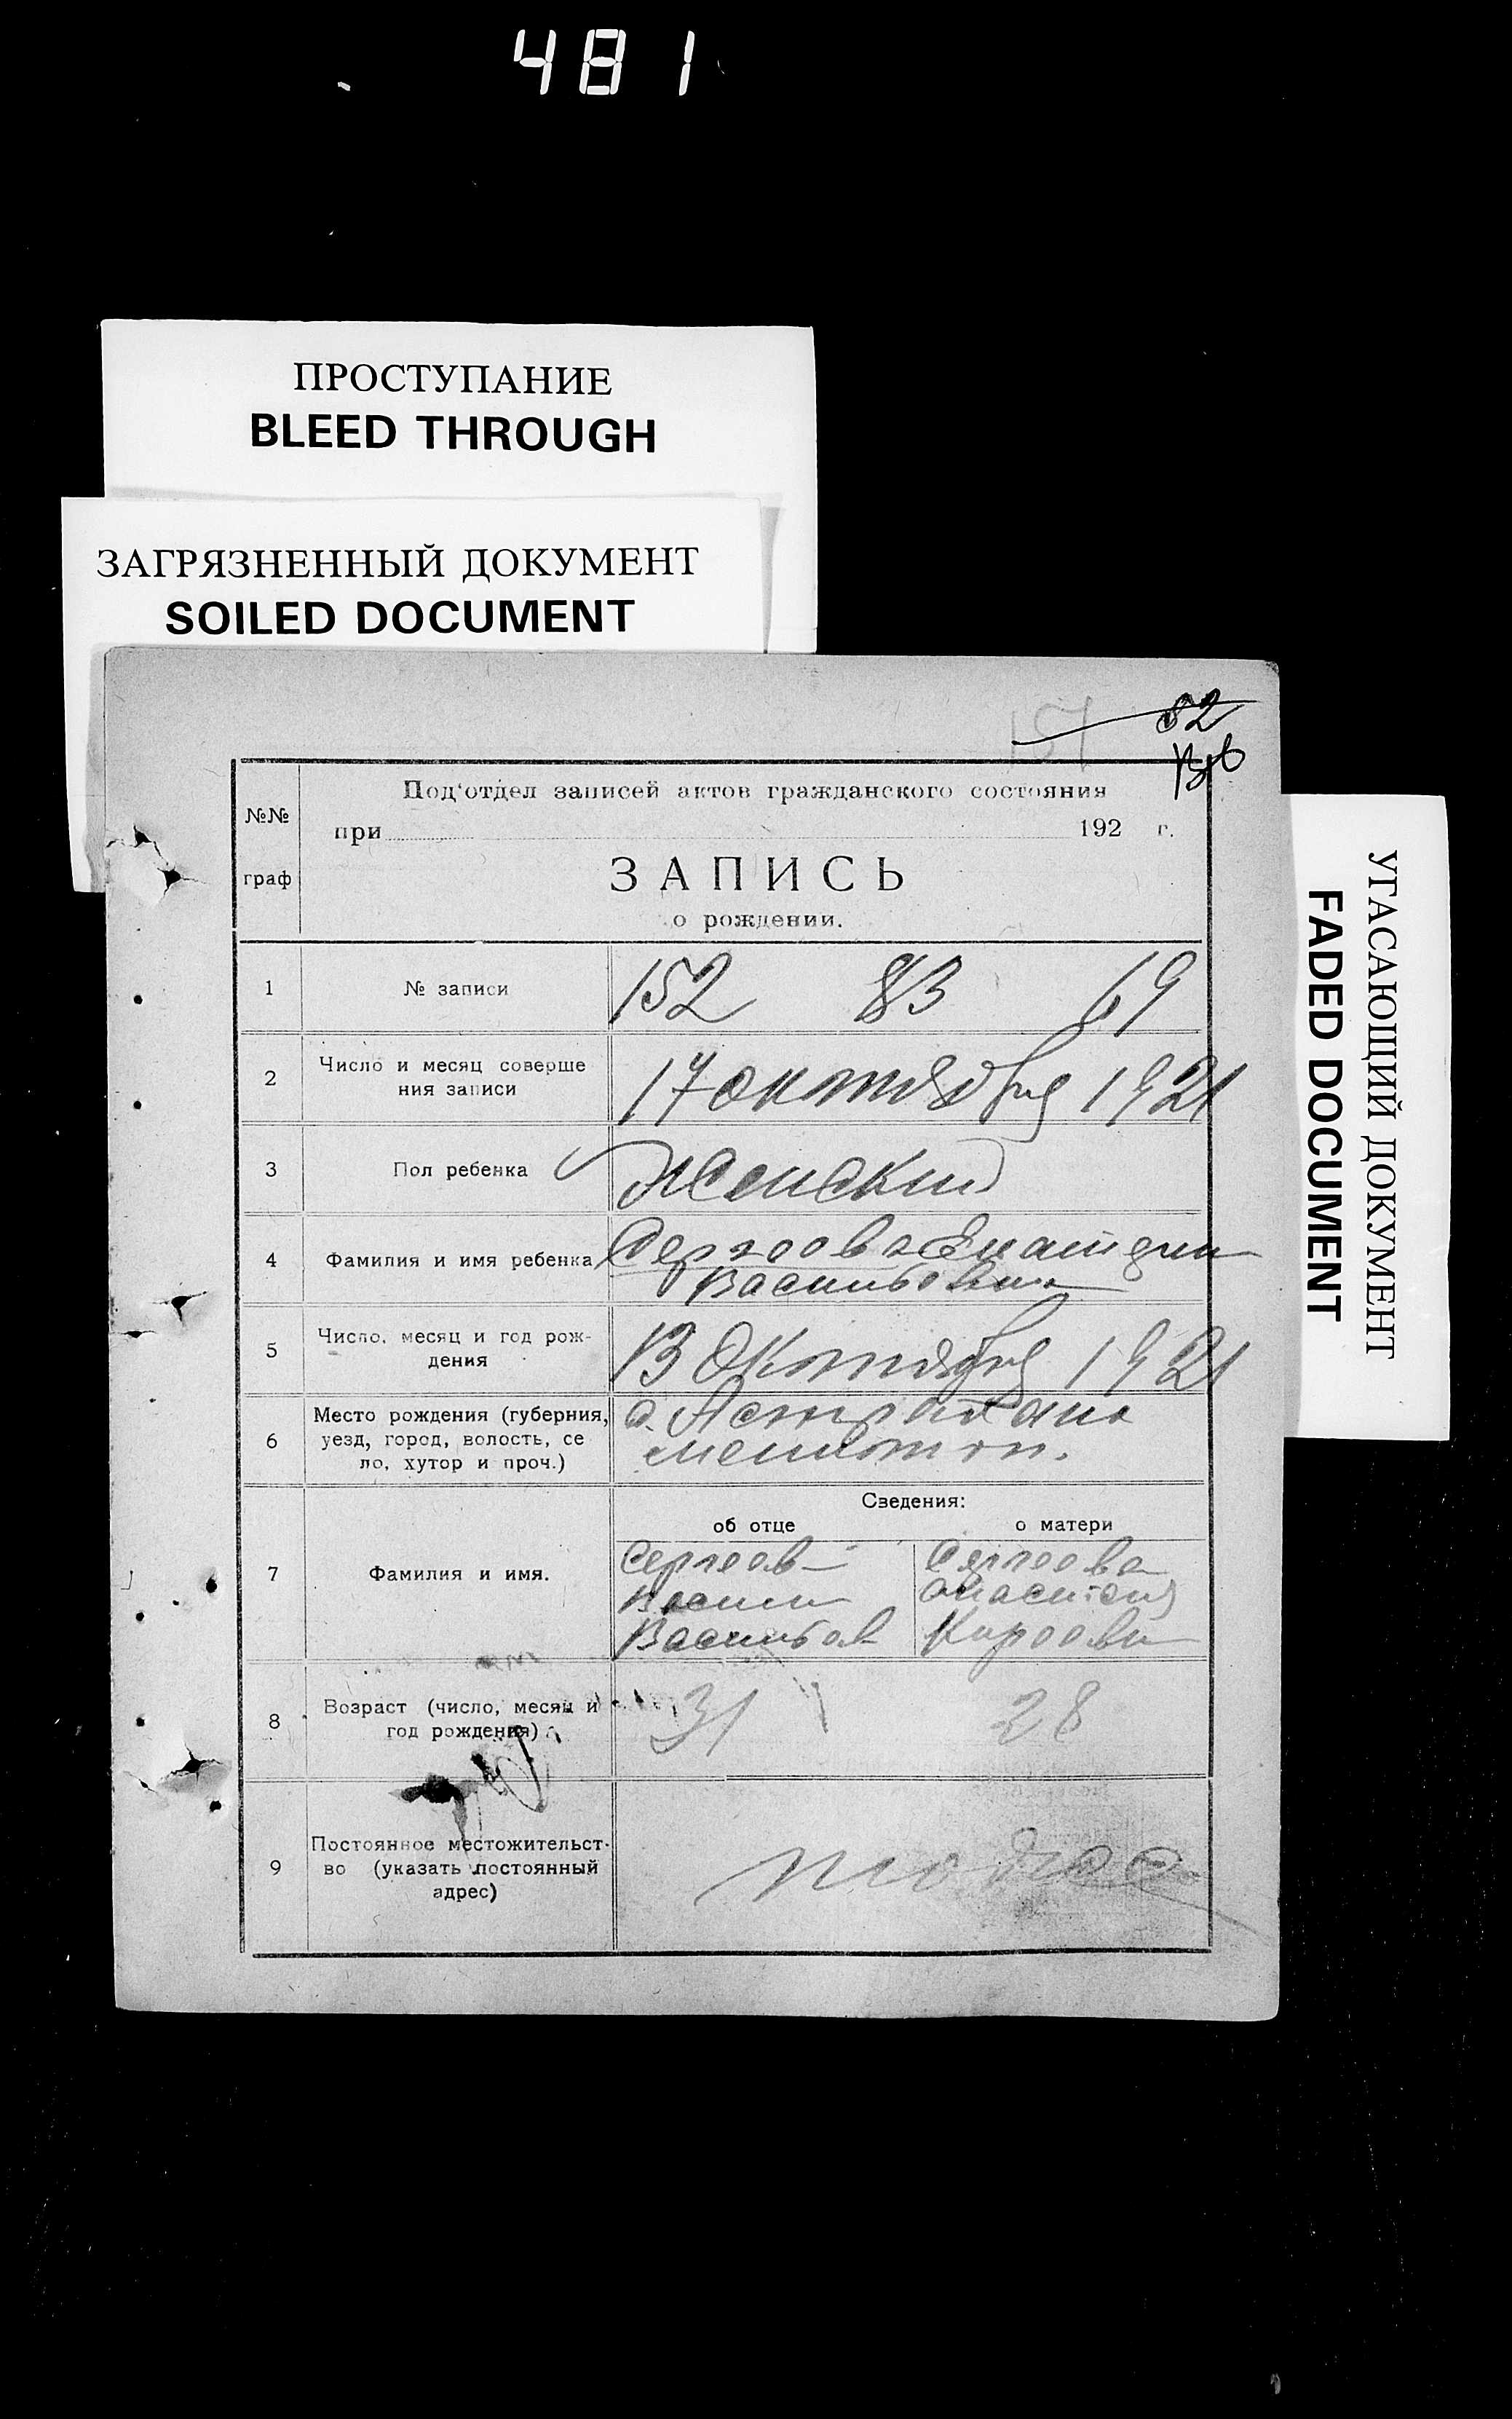 481
ПРОСТУПАНИЕ
BLEED THROUGH
ЗАГРЯЗНЕННЫЙ ДОКУМЕНТ
SOILED DOCUMENT
УГАСАЮЩИЙ ДОКУМЕНТ
FADED DOCUMENT
151 82
№№
граф
Под‘отдел записей актов гражданского состояния
при 192 г.
ЗАПИСЬ
о рождении.
1 № записи 152 83 69
2 Число и месяц соверше
ния записи
17 октября 1921
3 Пол ребенка Женский
4 Фамилия и имя ребенка Сергеева
Васильевна
5 Число, месяц и год рож-
дения
13 Октября 1921
6 Место рождения (губерния,
уезд, город, волость, се
ло, хутор и проч.)
Сведения:
об отце о матери
7 Фамилия и имя.
Сергеев Сергеева
8 Возраст (число, месяц и
год рождения)
31 28
9 Постоянное местожительст-
во (указать постоянный
адрес)